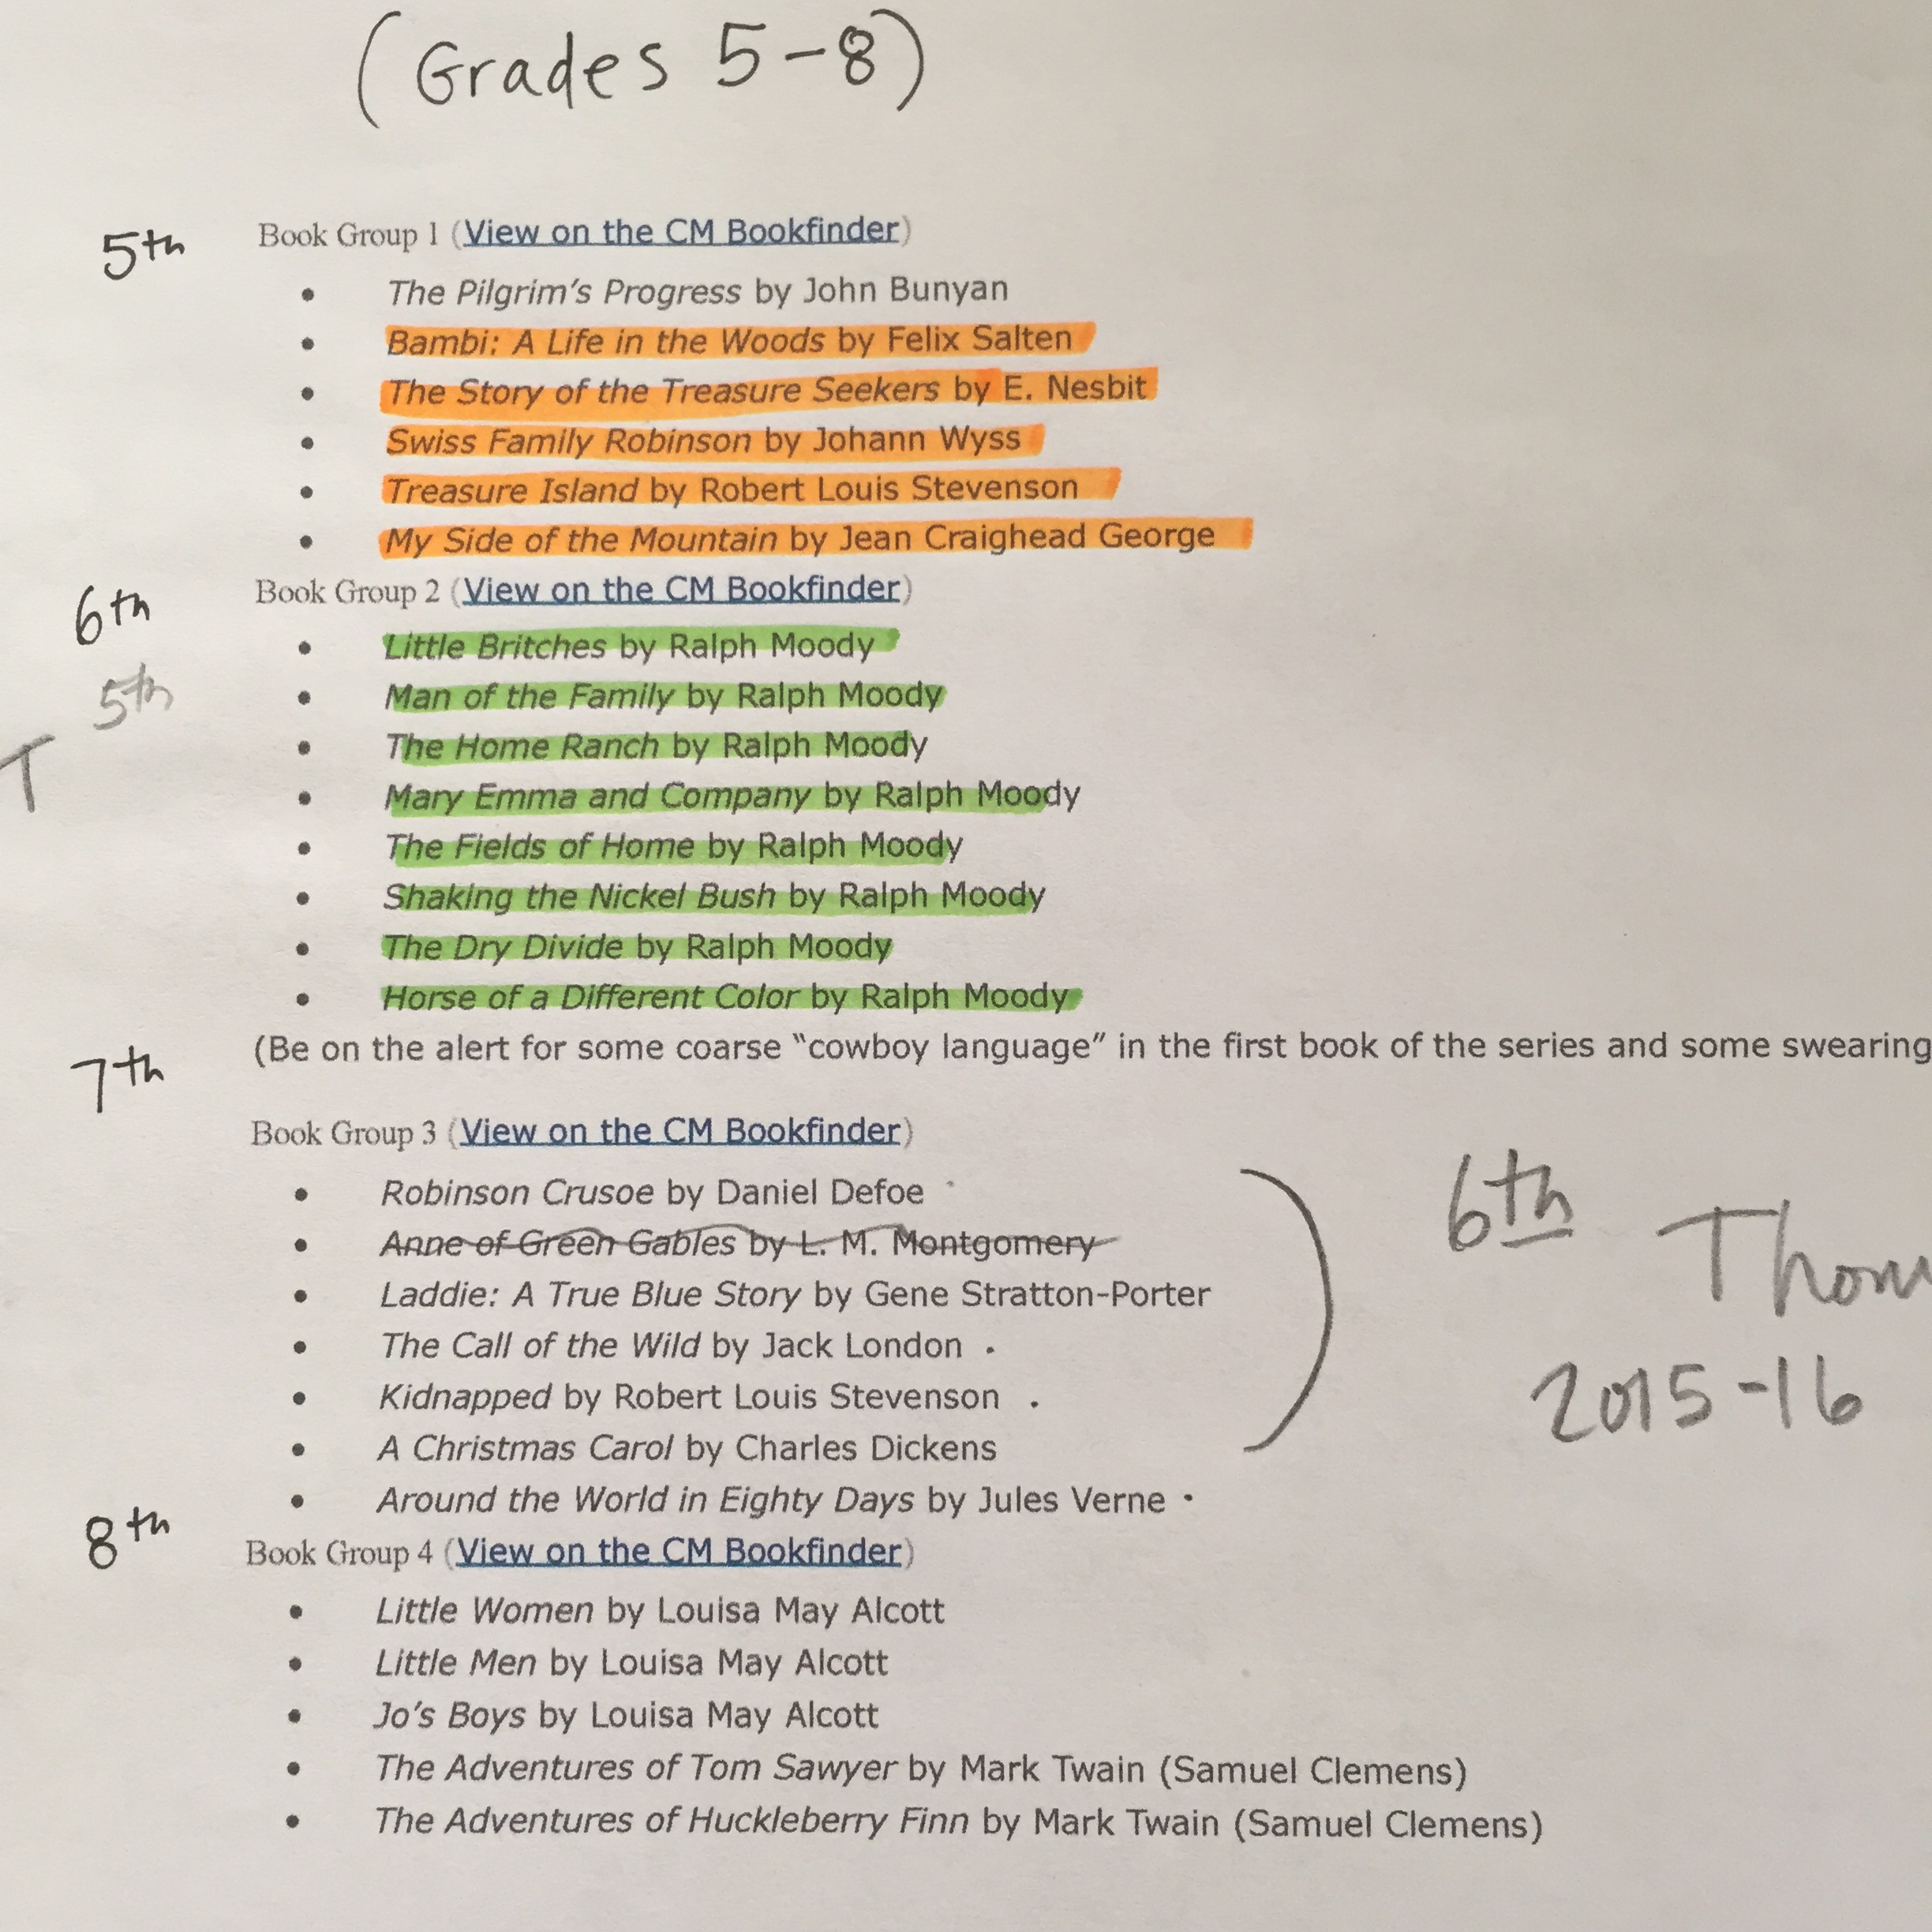 (Grades 5-8)
5th
Book Group 1 (View on the CM Bookfinder)
• The Pilgrim's Progress by John Bunyan
• Bambi: A Life in the Woods by Felix Salten
• The Story of the Treasure Seekers by E. Nesbit
• Swiss Family Robinson by Johann Wyss
• Treasure Island by Robert Louis Stevenson
• My Side of the Mountain by Jean Craighead George
6th
Book Group 2 (View on the CM Bookfinder)
• Little Britches by Ralph Moody
5th
• Man of the Family by Ralph Moody
T
• The Home Ranch by Ralph Moody
• Mary Emma and Company by Ralph Moody
• The Fields of Home by Ralph Moody
• Shaking the Nickel Bush by Ralph Moody
• The Dry Divide by Ralph Moody
• Horse of a Different Color by Ralph Moody
(Be on the alert for some coarse “cowboy language” in the first book of the series and some swearing
7th
Book Group 3 (View on the CM Bookfinder)
• Robinson Crusoe by Daniel Defoe
• Anne of Green Gables by L. M. Montgomery
• Laddie: A True Blue Story by Gene Stratton-Porter
• The Call of the Wild by Jack London
• Kidnapped by Robert Louis Stevenson
• A Christmas Carol by Charles Dickens
• Around the World in Eighty Days by Jules Verne
6th Thom
2015-16
8th
Book Group 4 (View on the CM Bookfinder)
• Little Women by Louisa May Alcott
• Little Men by Louisa May Alcott
• Jo's Boys by Louisa May Alcott
• The Adventures of Tom Sawyer by Mark Twain (Samuel Clemens)
• The Adventures of Huckleberry Finn by Mark Twain (Samuel Clemens)